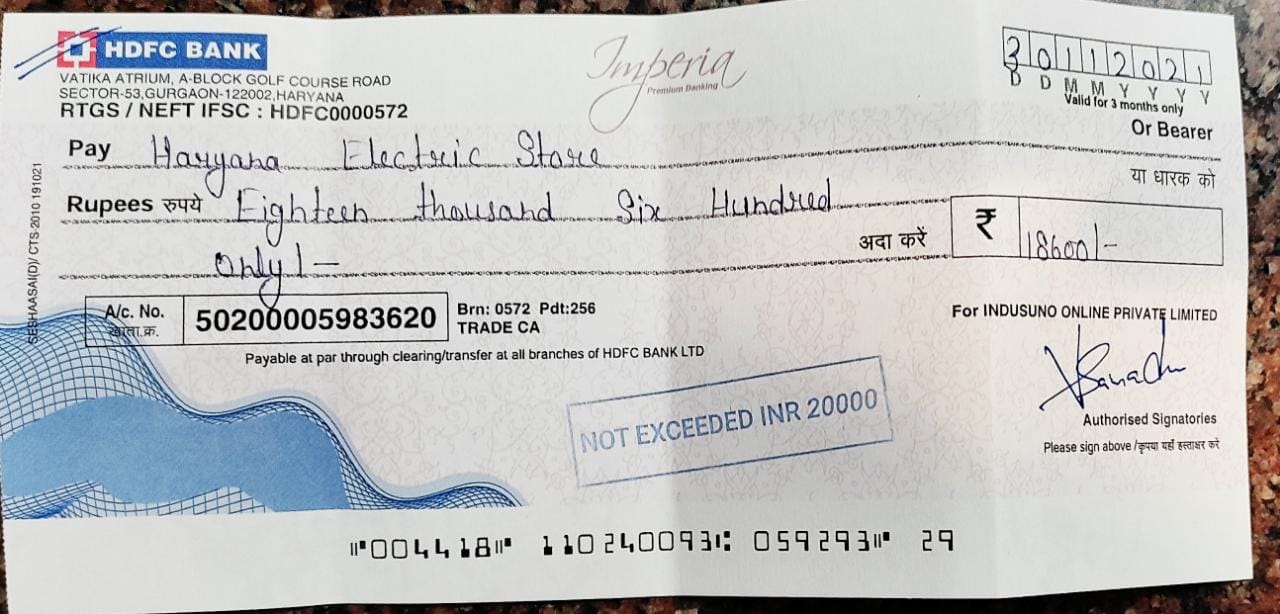 HDFC BANK
VATIKA ATRIUM, A-BLOCK GOLF COURSE ROAD
SECTOR-53,GURGAON-122002,HARYANA
RTGS / NEFT IFSC : HDFC0000572
Imperia
Premium Banking
30112021
D D M M Y Y Y Y
Valid for 3 months only
Pay Haryana Electric Store Or Bearer
या धारक को
Rupees रुपये Eighteen thousand Six Hundred
only/- अदा करें ₹ 18600/-
A/c. No. खाता.क्र. 50200005983620 Brn: 0572 Pdt:256
TRADE CA
Payable at par through clearing/transfer at all branches of HDFC BANK LTD
For INDUSUNO ONLINE PRIVATE LIMITED
NOT EXCEEDED INR 20000
Authorised Signatories
Please sign above /कृपया यहाँ हस्ताक्षर करे
SESHAASAI(D)/ CTS-2010 191021
⑈004418⑈ 110240093⑆ 059293⑈ 29